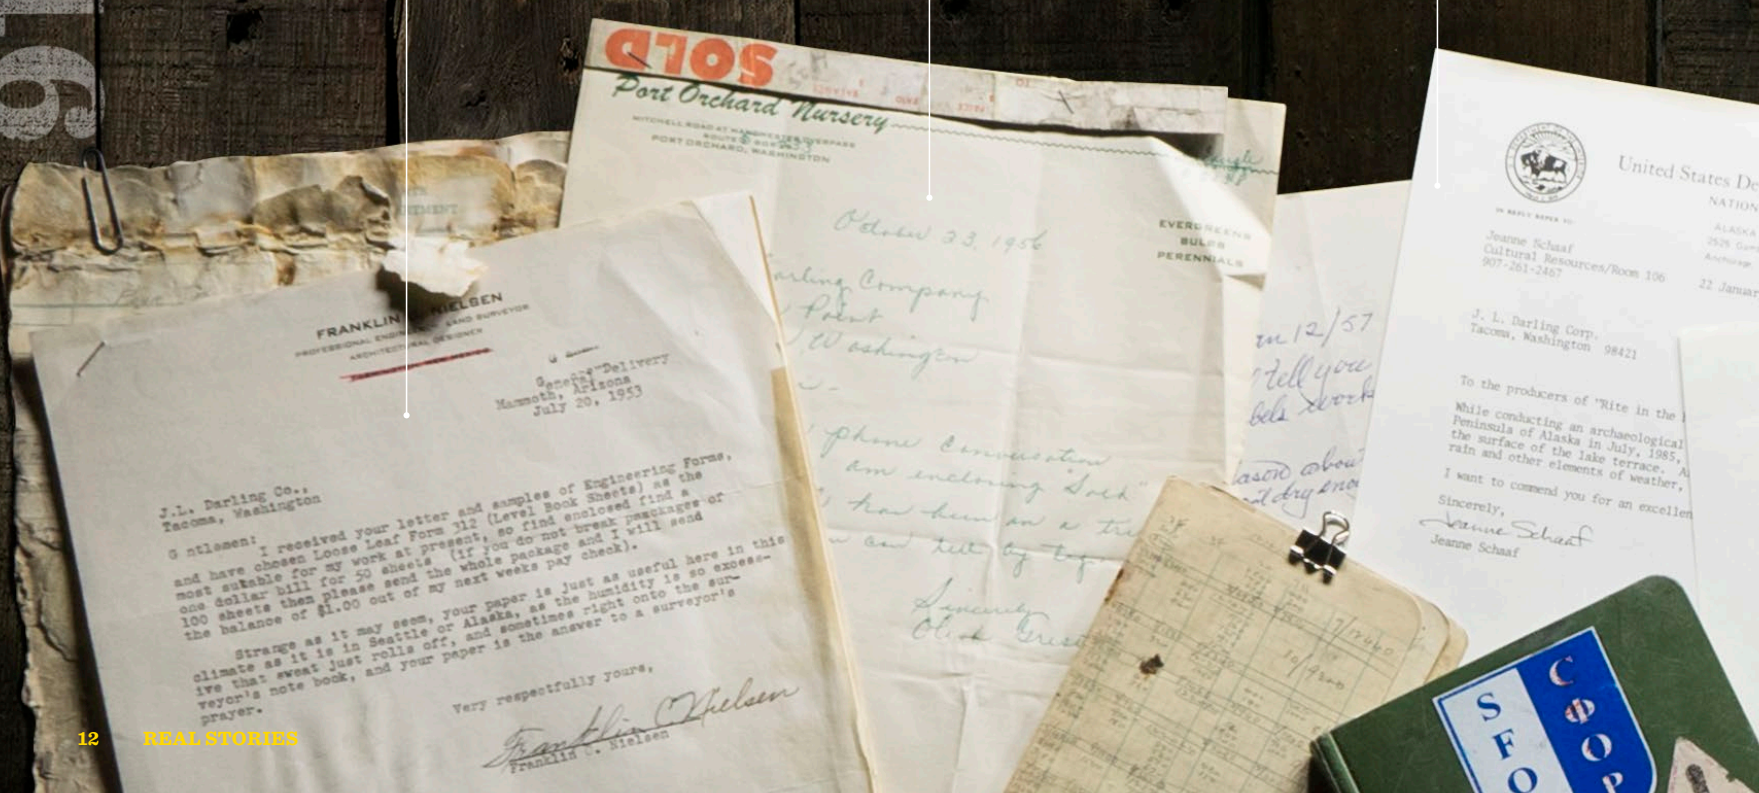 16
SOLD
Port Orchard Nursery
MITCHELL ROAD AT MANCHESTER OVERPASS
PORT ORCHARD, WASHINGTON
EVERGREENS
BULBS
PERENNIALS
October 23, 1956
arling Company
Point
Washington
phone conversation
am enclosing "Sold"
has been on a tre
can tell by
Sincerely
FRANKLIN NIELSEN
PROFESSIONAL ENGIN LAND SURVEYOR
ARCHITECTURAL DESIGNER
General Delivery
Mammoth, Arizona
July 20, 1953
J.L. Darling Co.,
Tacoma, Washington
G ntlemen:
I received your letter and samples of Engineering Forms,
and have chosen Loose Leaf Form 312 (Level Book Sheets) as the
most sutable for my work at present, so find enclosed find a
one dollar bill for 50 sheets (if you do not break packages of
100 sheets then please send the whole package and I will send
the balance of $1.00 out of my next weeks pay check).
Strange as it may seem, your paper is just as useful here in this
climate as it is in Seattle or Alaska, as the humidity is so excess-
ive that sweat just rolls off, and sometimes right onto the sur-
veyor's note book, and your paper is the answer to a surveyor's
prayer.
Very respectfully yours,
Franklin C Nielsen
Franklin C. Nielsen
12/57
tell you
bels work
about
dry
United States De
NATION
ALASKA
Anchorage
IN REPLY REFER TO:
Jeanne Schaaf
Cultural Resources/Room 106
907-261-2467
22 Januar
J. L. Darling Corp.
Tacoma, Washington 98421
To the producers of "Rite in the
While conducting an archaeological
Peninsula of Alaska in July, 1985,
the surface of the lake terrace. A
rain and other elements of weather,
I want to commend you for an excellen
Sincerely,
Jeanne Schaaf
Jeanne Schaaf
SFO
COOP
12 REAL STORIES